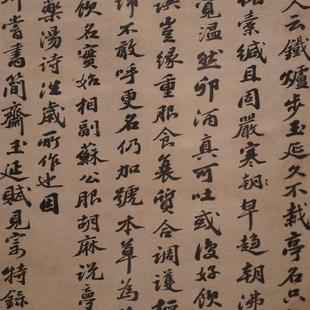 人云鐵爐步玉延久不栽亭石只
橐緘且固嚴寒朝〻早趨朝沸
覓溫然卯酒真可吐或復好飲
誤豈緣重服食衰質合調護
不敢呼更名仍加號本草為
飲名實始相副蘇公服胡麻說亭
藥湯詩往歲所作也因
嘗書簡齋玉延賦見寄特錄